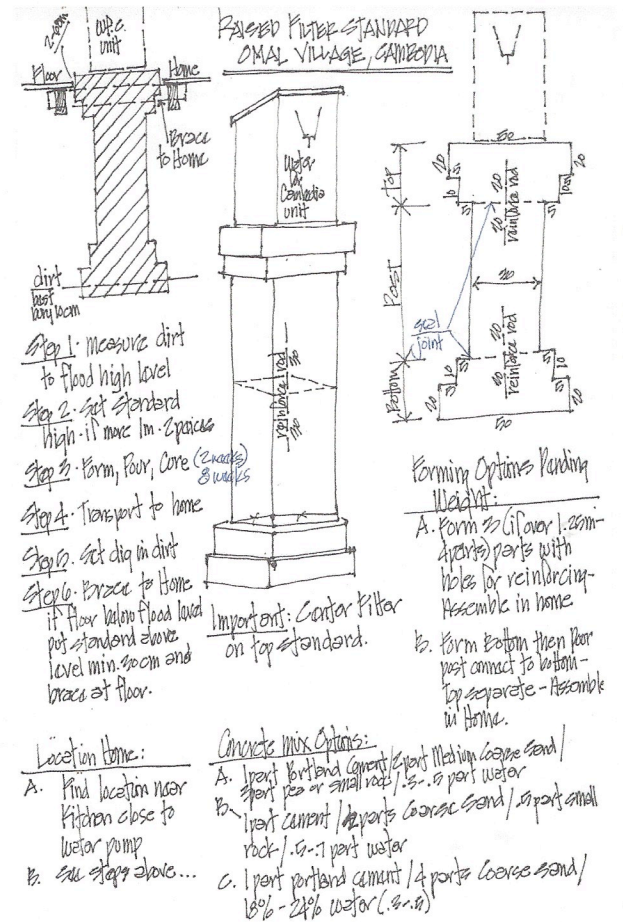 RAISED FILTER STANDARD
OMAL VILLAGE, CAMBODIA
W.F.C.
unit
Floor
Home
Brace
to Home
dirt
best
bury 10cm
Water
for
Cambodia
unit
reinforce rod
30
30
50
20
20
5
5
10
10
20
20
reinforce rod
5
5
Top
Post
Bottom
30
seal
joint
20
20
reinforce rod
5
5
10
10
5
5
20
20
50
Step 1. measure dirt
to flood high level
Step 2. Set Standard
high. if more 1m. 2 peices
Step 3. Form, Pour, Cure (2 weeks)
8 weeks
Step 4. Transport to home
Step 5. Set dig in dirt
Step 6. Brace to Home
if floor below flood level
put standard above
level min. 30cm and
brace at floor.
Important: Center Filter
on top standard.
Forming Options Pending
Weight:
A. Form 3 (if over 1.25m-
4 parts) parts with
holes for reinforcing-
Assemble in home
B. Form Bottom then Poor
post connect to bottom-
Top separate - Assemble
in Home.
Location Home:
A. Find location near
Kitchen close to
water pump
B. See steps above...
Concrete mix Options:
A. 1 part Portland Cement/2 part Medium Coarse Sand/
3 part pea or small rock/.3-.5 part water
B. 1 part cement/2 parts Coarse Sand/.5 part small
rock/.5-.7 part water
C. 1 part portland cement/4 parts Coarse sand/
18% - 24% water (.3-.5)